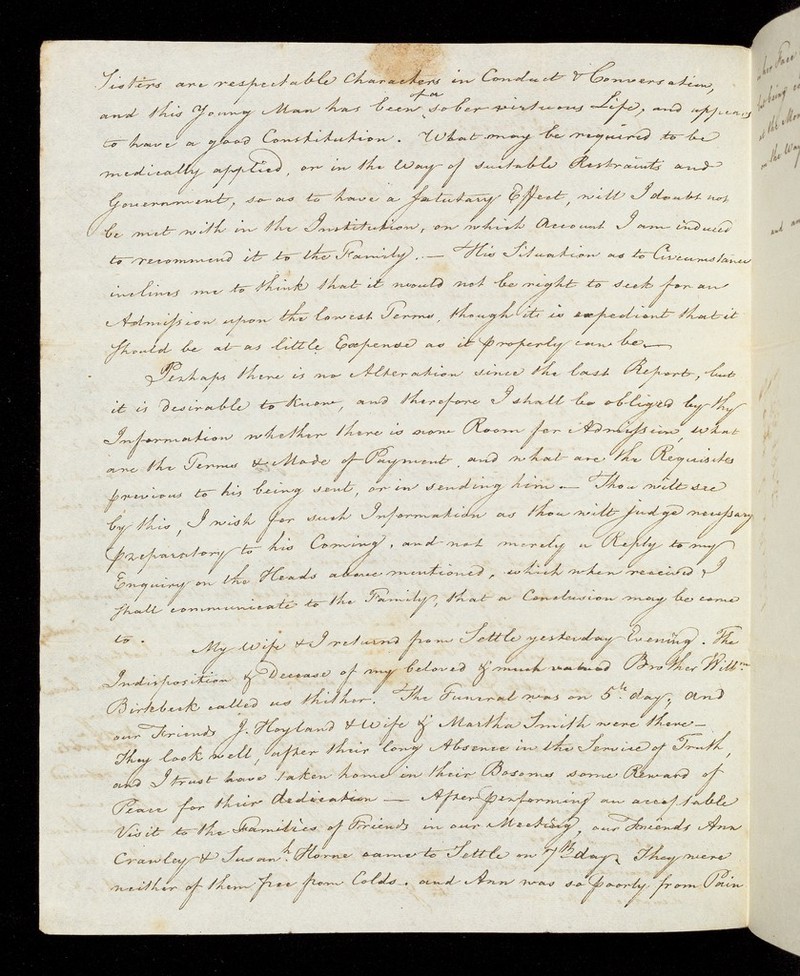 Sisters are respectable Characters in Conduct & Conversation,
and this Young Man has been of a sober virtuous Life, and appears
to have a good Constitution. What may be required to be
medically applied, or in the Way of suitable Restraints and
Government, so as to have a salutary Effect, will I doubt not
be met with in the Institution, on which Account I am induced
to recommend it to the Family. — His Situation as to Circumstances
inclines me to think that it would not be right to seek for an
Admission upon the lowest Terms, though it is expedient that it
should be at as little Expense as it properly can be. —
Perhaps there is no Alteration since the last Report, but
it is desirable to know, and therefore I shall be obliged by thy
Information whether there is now Room for Admission, what
are the Terms & Mode of Payment, and what are the Requisites
previous to his being sent, or in sending him — Thou wilt see
by this, I wish for such Information as thou wilt judge necessary
preparatory to his Coming, and not merely a Reply to my
Enquiry on the Heads above mentioned, which when received, I
shall communicate to the Family, that a Conclusion may be come
to. My Wife & I returnd from Settle yesterday Evening. The
Indisposition & Decease of my beloved & much valued Brother Willm
Birkbeck called us thither. The Funeral was on 5th day, and
our Friends J. Hoyland & Wife & Martha Smith were there —
They look well, after their long Absence in the Service of Truth,
and I trust have taken home in their Bosoms some Reward of
Peace for their dedication — After performing an acceptable
Visit to the Families of Friends in our Meeting, our Friends Ann
Crawley & Susanh Horne came to Settle on 7th day. They were
neither of them free from Colds, and Ann was so poorly from Pain